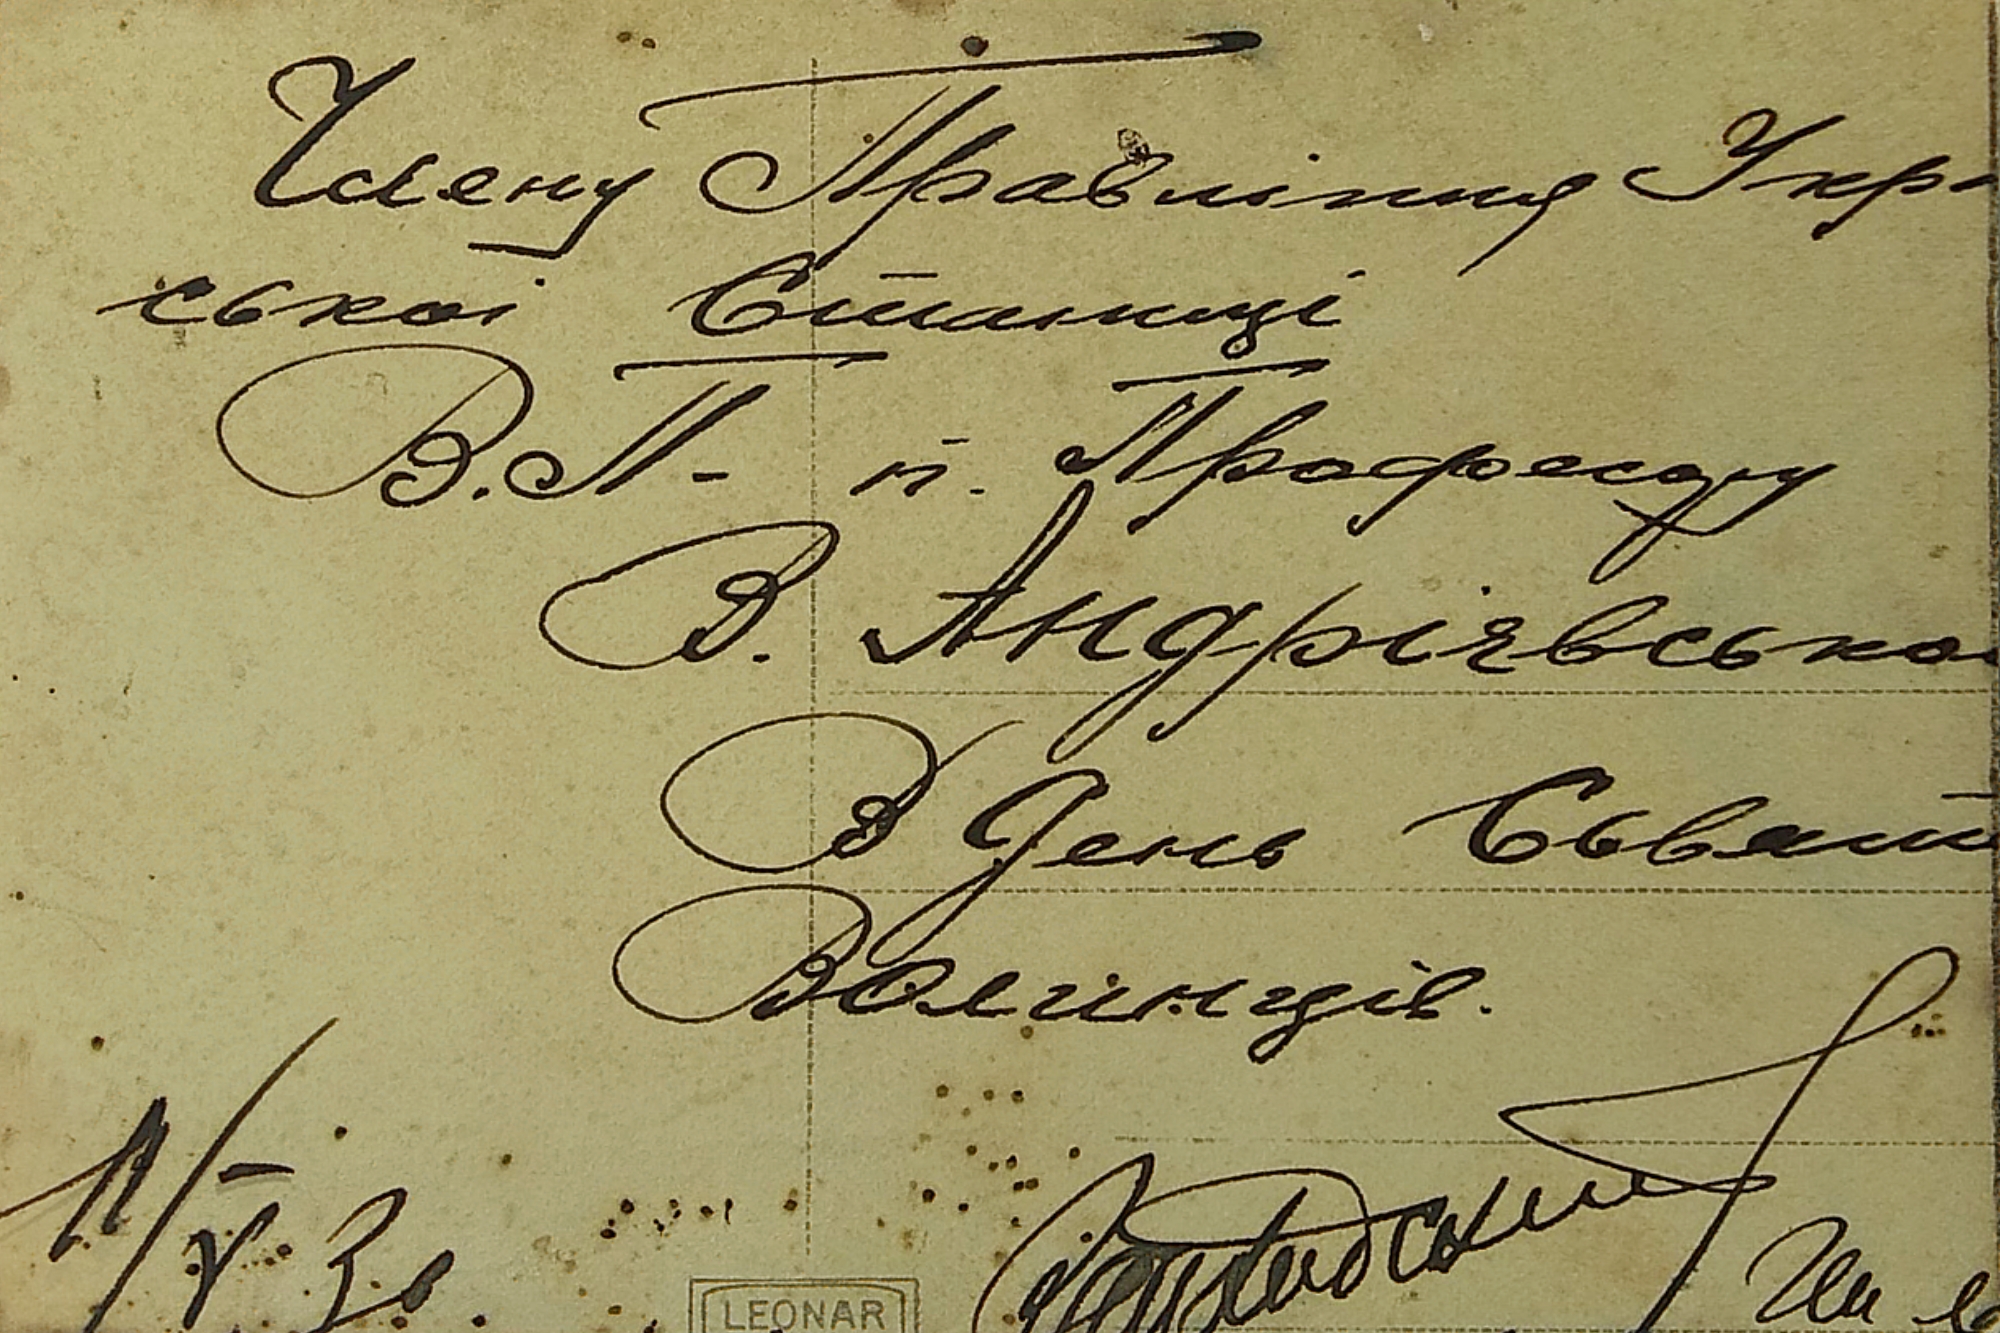 Члену Правління Укра
ської Станиці
В.П. п. Професору
В. Андріявсько
В день Сьвят
Волинців.
1/V 30.
LEONAR